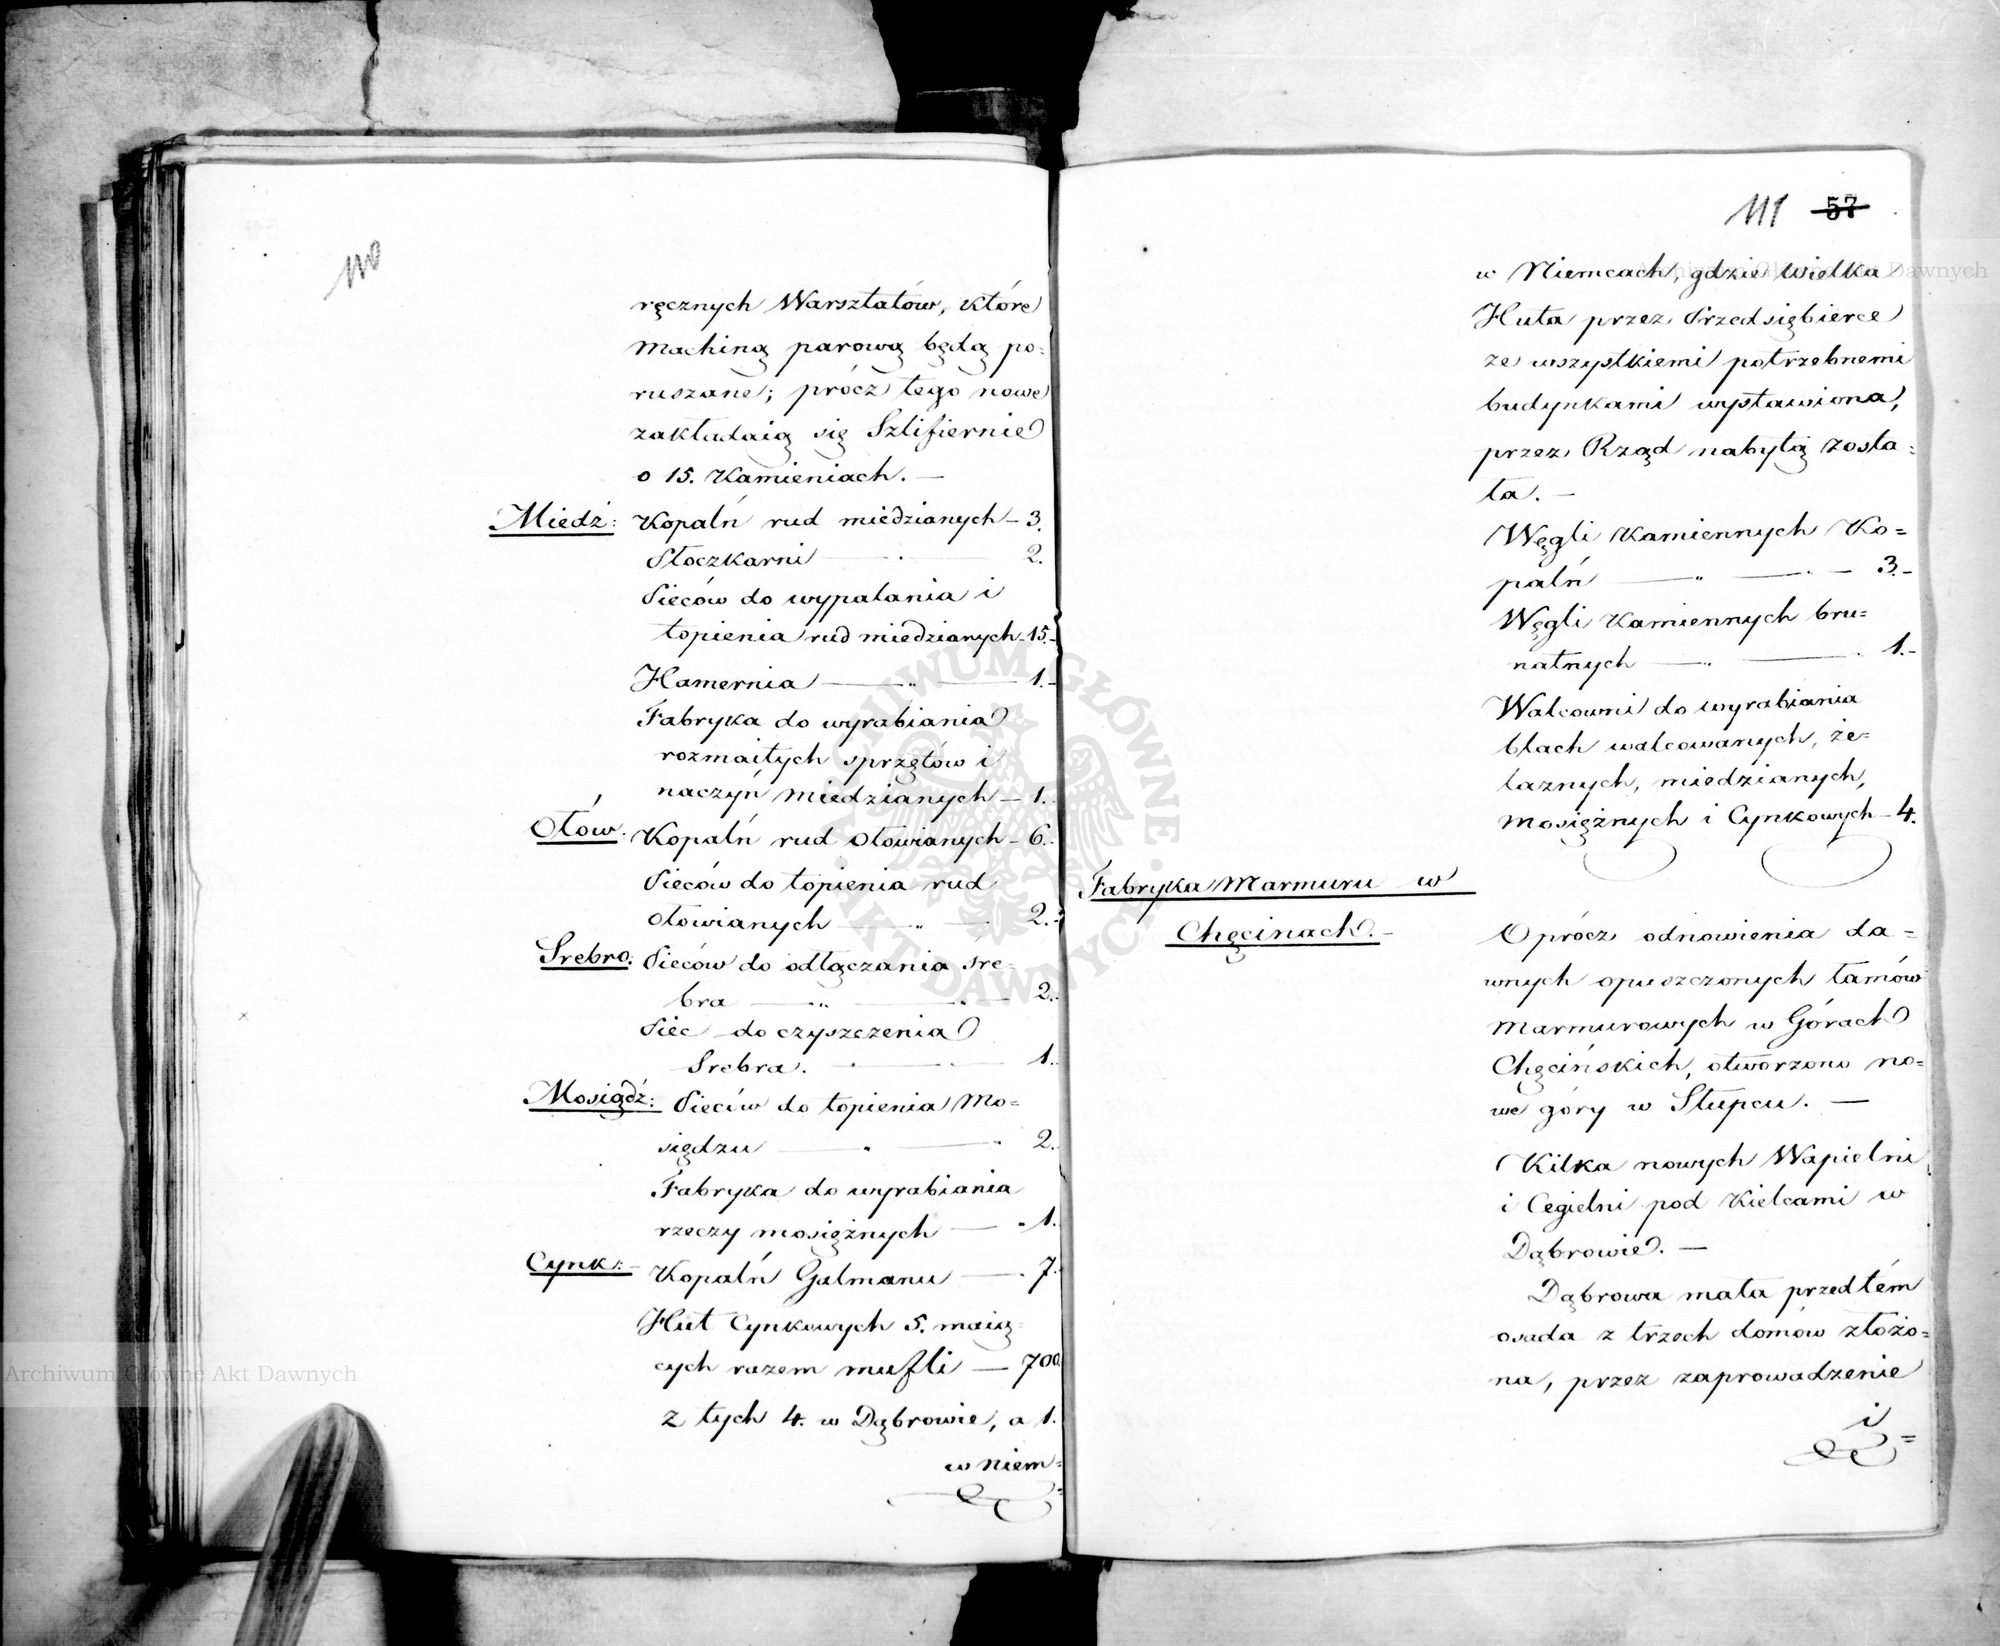 110
ręcznych Warsztatów, które
Machiną parową będą po=
ruszane; prócz tego nowe
zakładaią się Szlifiernie
o 15. Kamieniach. —
Miedź: Kopalń rud miedzianych — 3.
Płoczkarni — " — 2.
Pieców do wypalania i
topienia rud miedzianych — 15. —
Hamernia — " — 1. —
Fabryka do wyrabiania
rozmaitych sprzętów i
naczyń miedzianych — 1.
Ołów: Kopalń rud ołowianych — 6. —
Pieców do topienia rud
ołowianych — " — 2. —
Srebro: Pieców do odłączania śre=
bra — " — " — 2. —
Piec do czyszczenia
Srebra. — " — 1. —
Mosiądź: Pieców do topienia Mo=
siędzu — " — " 2.
Fabryka do wyrabiania
rzeczy mosiężnych — " 1.
Cynk: — Kopalń Galmanu — . 7.
Hut Cynkowych 5. maią=
cych razem mufli — 700.
z tych 4. w Dąbrowie, a 1.
w Niem=
111 57
w Niemcach, gdzie wielka
Huta przez Przedsiębierce
ze wszystkiemi potrzebnemi
budynkami wystawiona,
przez Rząd nabytą zosta=
ła. —
Węgli Kamiennych Ko=
palń — " — " — 3. —
Węgli Kamiennych bru=
natnych — " — " 1. —
Walcowni do wyrabiania
blach walcowanych, że=
laznych, miedzianych,
mosiężnych i Cynkowych — 4.
Fabryka Marmuru w
Chęcinach. —
Oprócz odnowienia da=
wnych opuszczonych łamów
Marmurowych w Górach
Chęcińskich, otworzono no=
we góry w Słupcu. —
Kilka nowych Wapielni
i Cegielni pod Kielcami w
Dąbrowie. —
Dąbrowa mała przedtém
osada z trzech domów złożo=
na, przez zaprowadzenie
i =
Archiwum Główne Akt Dawnych
Archiwum Główne Akt Dawnych
ARCHIWUM GŁÓWNE AKT DAWNYCH